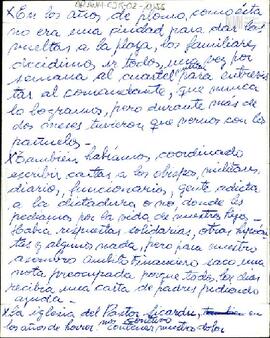 x En los años, de plomo, como esta
no era una ciudad para dar las
vueltas a la plaza, los familiares
decidimos ir todos, una vez por
semana al cuartel para entrevis
tar al comandante, que nunca
lo logramos, pero durante más de
dos meses tuvieron que vernos con los
pañuelos -
x También habíamos coordinado
escribir cartas a los obispos, militares,
diarios, funcionarios, gente adicta
a la dictadura o no, donde les
pedíamos por la vida de nuestros hijos -
Había respuestas solidarias, otras
y algunos nada, pero para nuestro
asombro Ambito Financiero sacó una
nota, preocupada porque todos los días
recibía una carta de padres pidiendo
ayuda -
x La iglesia del Pastor
los años de horror, contener nuestro dolor